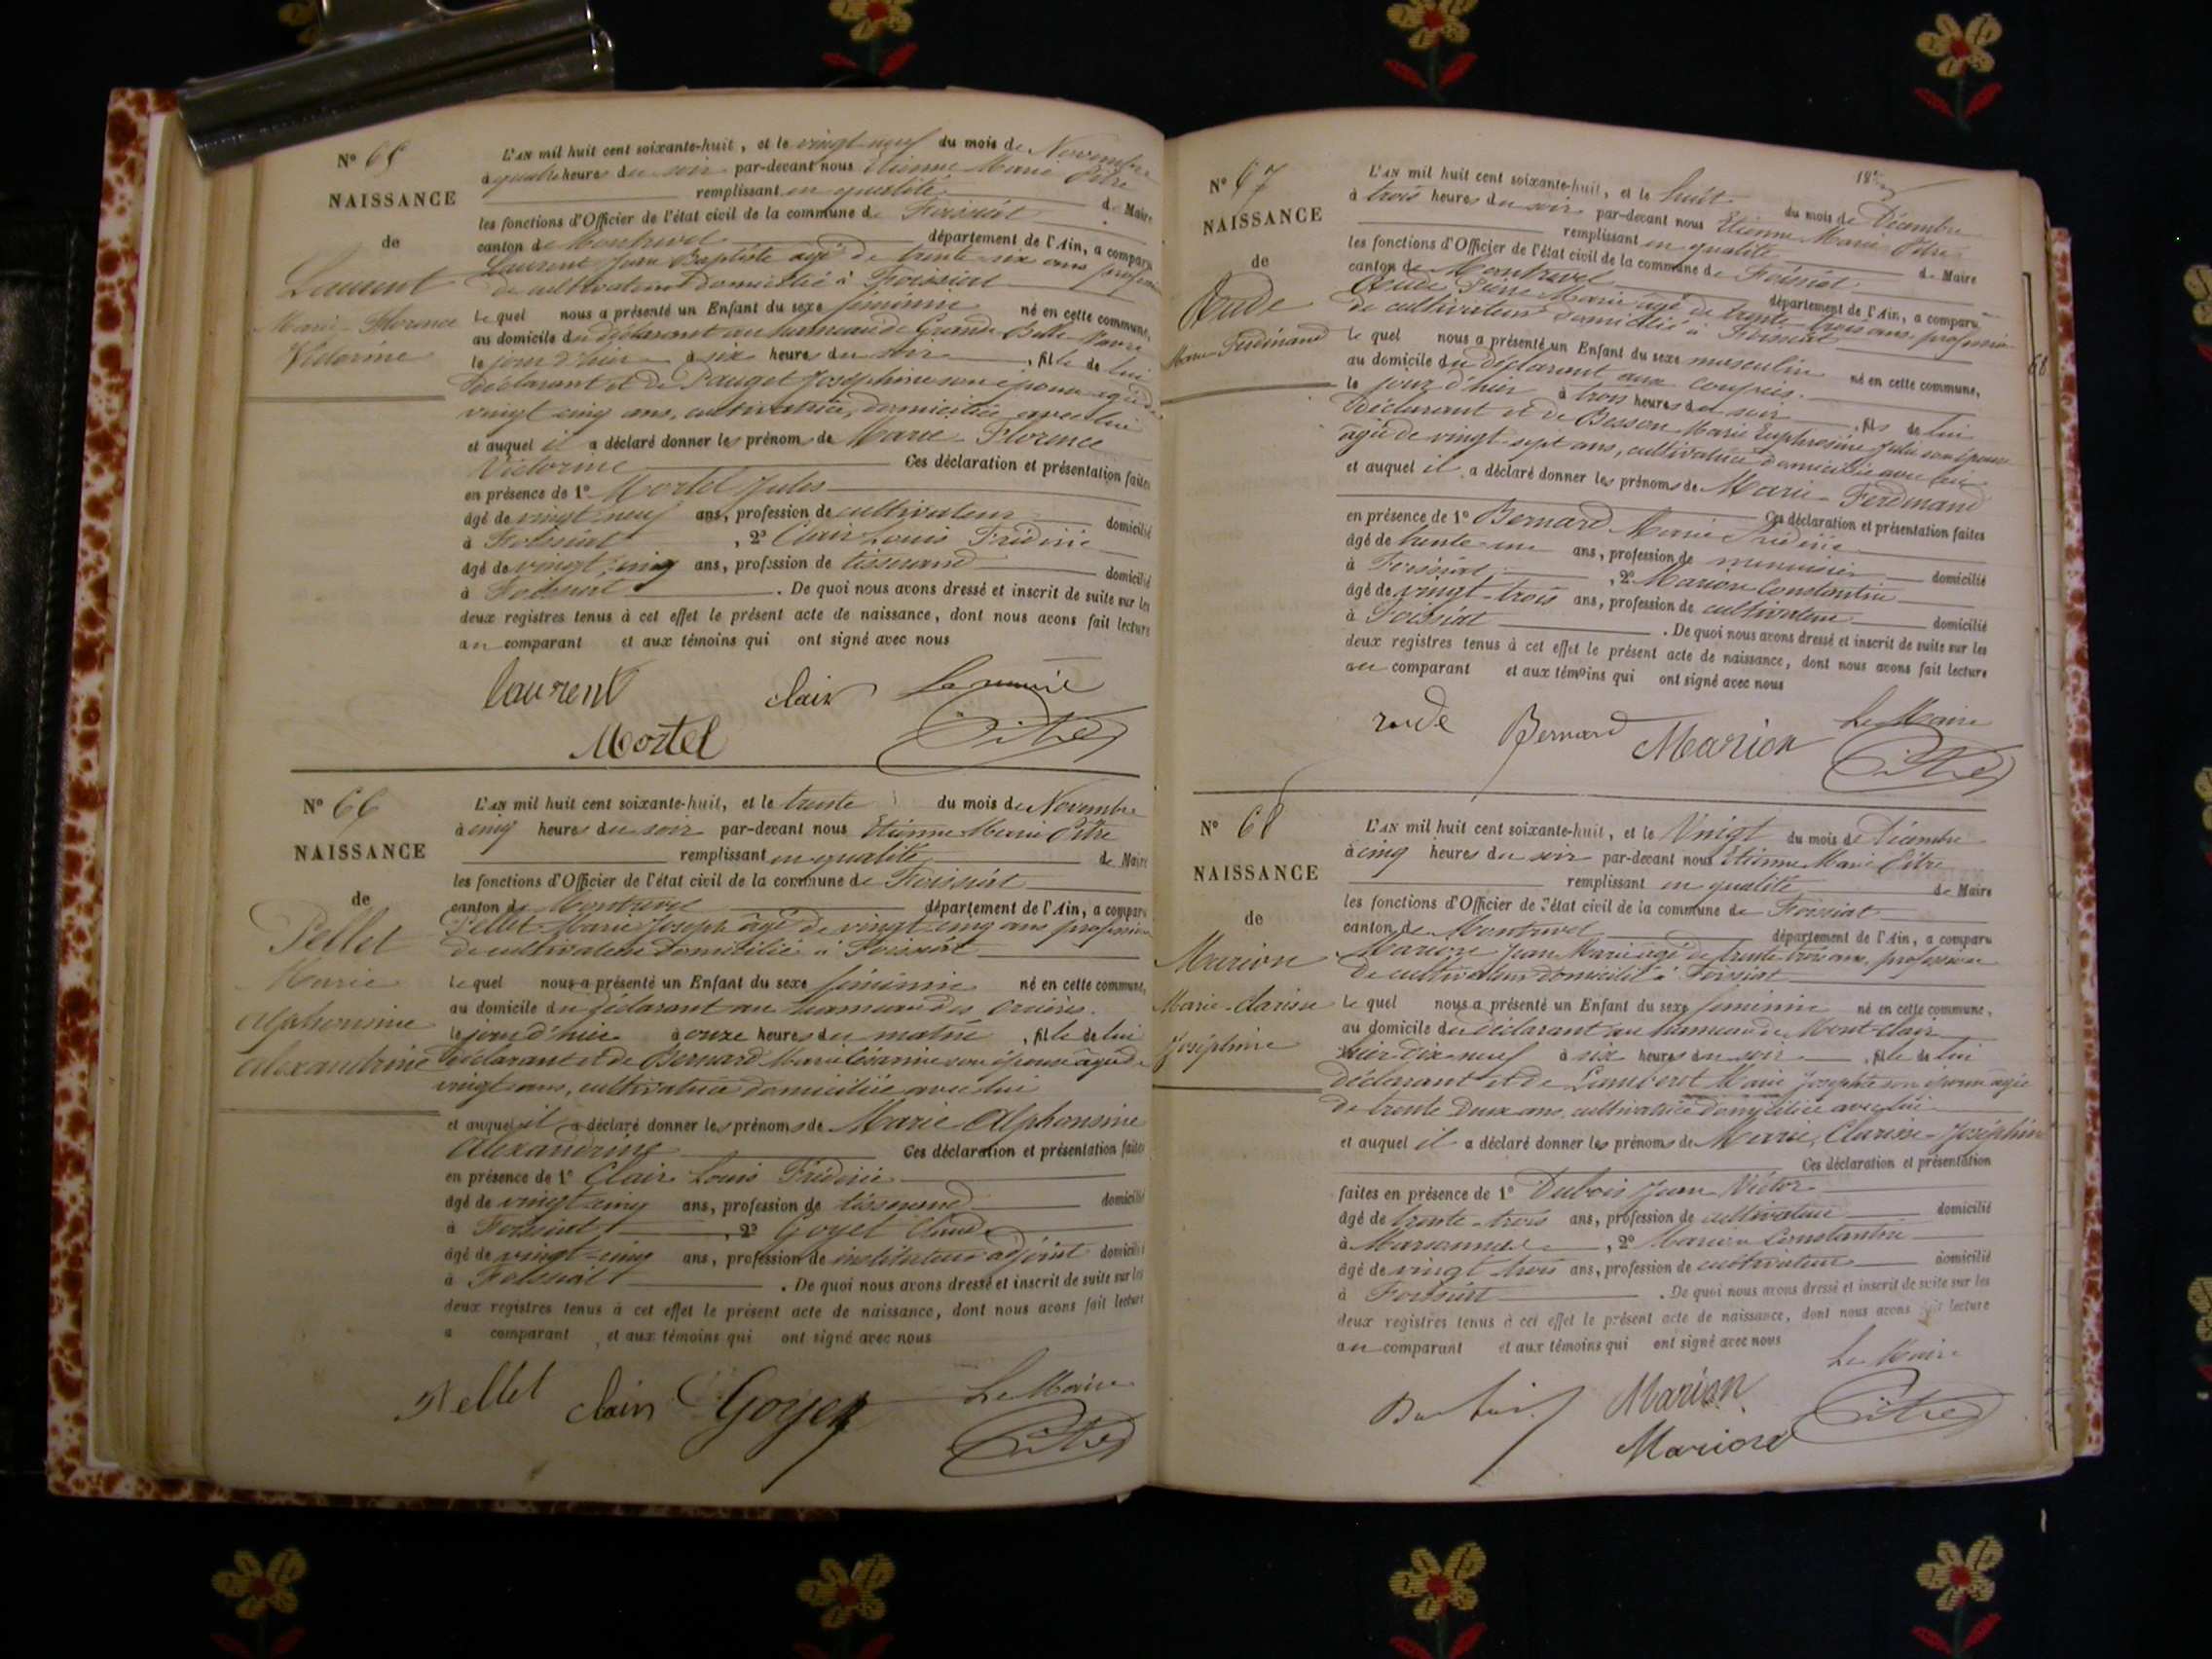 N° 65
NAISSANCE
de
Laurent
Marie-Florence
Victorine
L'AN mil huit cent soixante-huit, et le vingt-neuf du mois de Novembre
à quatre heures du soir par-devant nous Etienne Marie Pitre
remplissant en qualité de Maire
les fonctions d'Officier de l'état civil de la commune de Foissiat
canton de Montrevel département de l'Ain, a comparu
Laurent Jean Baptiste âgé de trente-six ans profession
de cultivateur domicilié à Foissiat
Le quel nous a présenté un Enfant du sexe féminin né en cette commune,
au domicile du déclarant au hameau de Grande
le jour d'hier à six heures du soir, fille de lui
Déclarant et de Pauget Joséphine son épouse âgée de
vingt cinq ans, cultivatrice, domiciliée avec lui
et auquel il a déclaré donner les prénoms de Marie-Florence
Victorine Ces déclaration et présentation faites
en présence de 1° Mortel Jules
âgé de vingt neuf ans, profession de cultivateur domicilié
à Foissiat, 2° Clair Louis Frédéric
âgé de vingt cinq ans, profession de tisserand domicilié
à Foissiat. De quoi nous avons dressé et inscrit de suite sur les
deux registres tenus à cet effet le présent acte de naissance, dont nous avons fait lecture
au comparant et aux témoins qui ont signé avec nous
laurent clair Le maire
Mortel Pitre
N° 66
NAISSANCE
de
Pellet
Marie
Alphonsine
Alexandrine
L'AN mil huit cent soixante-huit, et le trente du mois de Novembre
à cinq heures du soir par-devant nous Etienne Marie Pitre
remplissant en qualité de Maire
les fonctions d'Officier de l'état civil de la commune de Foissiat
canton de Montrevel département de l'Ain, a comparu
Pellet Marie Joseph âgé de vingt cinq ans profession
de cultivateur domicilié à Foissiat
Le quel nous a présenté un Enfant du sexe féminin né en cette commune,
au domicile du déclarant au hameau des
le jour d'hier à onze heures du matin, fille de lui
déclarant et de Bernard Marie Césarine son épouse âgée de
vingt ans, cultivatrice domiciliée avec lui
et auquel il a déclaré donner les prénoms de Marie Alphonsine
Alexandrine Ces déclaration et présentation faites
en présence de 1° Clair Louis Frédéric
âgé de vingt cinq ans, profession de tisserand domicilié
à Foissiat, 2° Goyet Claude
âgé de vingt-cinq ans, profession de instituteur adjoint domicilié
à Foissiat. De quoi nous avons dressé et inscrit de suite sur les
deux registres tenus à cet effet le présent acte de naissance, dont nous avons fait lecture
a comparant, et aux témoins qui ont signé avec nous
Pellet clair Goyet Le Maire
Pitre
N° 67
NAISSANCE
de
Rude
Marie-Ferdinand
L'AN mil huit cent soixante-huit, et le huit du mois de Décembre
à trois heures du soir par-devant nous Etienne Marie Pitre
remplissant en qualité de Maire
les fonctions d'Officier de l'état civil de la commune de Foissiat
canton de Montrevel département de l'Ain, a comparu
Rude Pierre Marie âgé de trente-trois ans, profession
de cultivateur domicilié à Foissiat
Le quel nous a présenté un Enfant du sexe masculin né en cette commune,
au domicile du déclarant aux
le jour d'hier à trois heures du soir, fils de lui
Déclarant et de Besson Marie Euphrosine Julie son épouse
âgée de vingt sept ans, cultivatrice domiciliée avec lui
et auquel il a déclaré donner les prénoms de Marie-Ferdinand
Ces déclaration et présentation faites
en présence de 1° Bernard Marie Frédéric
âgé de trente-un ans, profession de menuisier domicilié
à Foissiat, 2° Marion Constantin
âgé de vingt-trois ans, profession de cultivateur domicilié
à Foissiat. De quoi nous avons dressé et inscrit de suite sur les
deux registres tenus à cet effet le présent acte de naissance, dont nous avons fait lecture
au comparant et aux témoins qui ont signé avec nous
rude Bernard Marion Le Maire
Pitre
N° 68
NAISSANCE
de
Marion
Marie-Clarisse
Joséphine
L'AN mil huit cent soixante-huit, et le Vingt du mois de Décembre
à cinq heures du soir par-devant nous Etienne Marie Pitre
remplissant en qualité de Maire
les fonctions d'Officier de l'état civil de la commune de Foissiat
canton de Montrevel département de l'Ain, a comparu
Marion Jean Marie âgé de trente-trois ans, profession
de cultivateur domicilié à Foissiat
Le quel nous a présenté un Enfant du sexe féminin né en cette commune,
au domicile du déclarant au hameau de Mont-clair
hier dix-neuf à six heures du soir, fille de lui
déclarant et de Lamberet Marie Josephte son épouse âgée
de trente deux ans, cultivatrice domiciliée avec lui
et auquel il a déclaré donner les prénoms de Marie, Clarisse-Joséphine
Ces déclaration et présentation
faites en présence de 1° Dubois Jean Victor
âgé de trente-trois ans, profession de cultivateur domicilié
à Marsonnas, 2° Marion Constantin
âgé de vingt trois ans, profession de cultivateur domicilié
à Foissiat. De quoi nous avons dressé et inscrit de suite sur les
deux registres tenus à cet effet le présent acte de naissance, dont nous avons fait lecture
au comparant et aux témoins qui ont signé avec nous
Le Maire
Dubois Marion Pitre
Marion